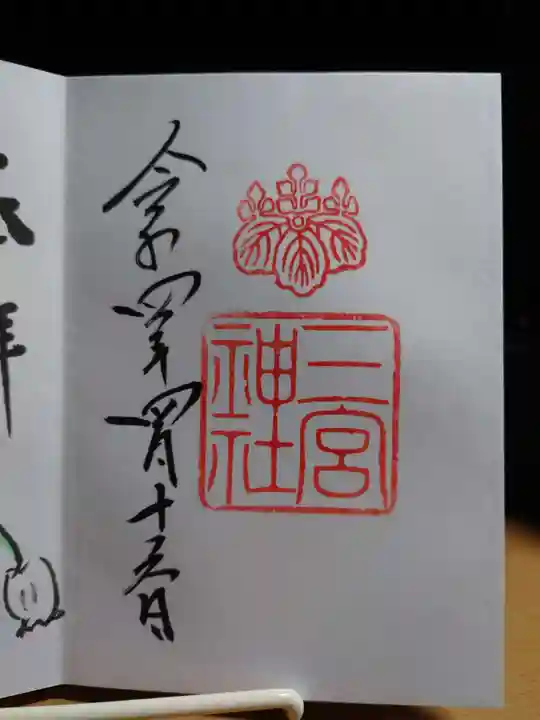 令和四年四月十五日
三宮神社